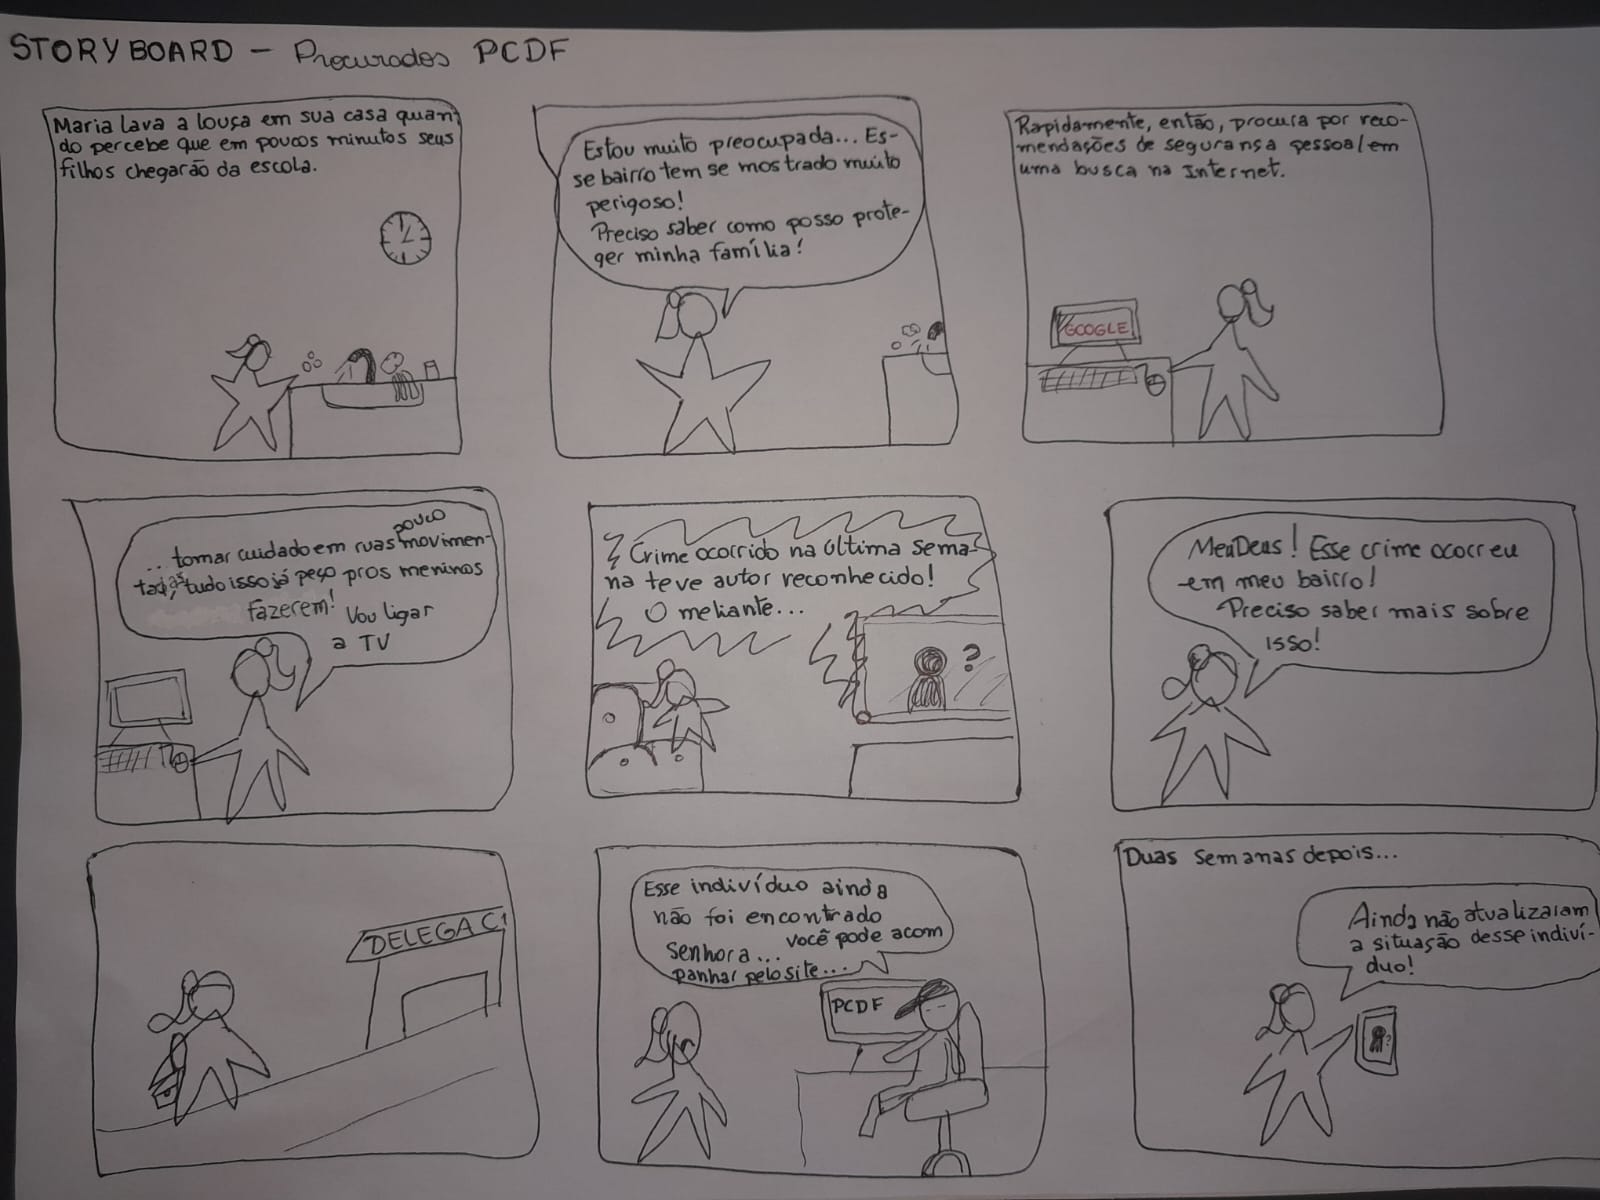 STORYBOARD - Procurados PCDF
Maria lava a louça em sua casa quan-
do percebe que em poucos minutos seus
filhos chegarão da escola.
Estou muito preocupada... Es-
se bairro tem se mostrado muito
perigoso!
Preciso saber como posso prote-
ger minha família!
Rapidamente, então, procura por reco-
mendações de segurança pessoal em
uma busca na Internet.
GOOGLE
pouco
...tomar cuidado em ruas movimen-
tadas, tudo isso já peço pros meninos
fazerem! Vou ligar
a TV
Crime ocorrido na última sema-
na teve autor reconhecido!
O meliante...
?
Meu Deus! Esse crime ocorreu
em meu bairro!
Preciso saber mais sobre
isso!
DELEGACI
Esse indivíduo ainda
não foi encontrado
senhora... você pode acom
panhar pelo site...
PCDF
Duas semanas depois...
Ainda não atualizaram
a situação desse indiví-
duo!
?